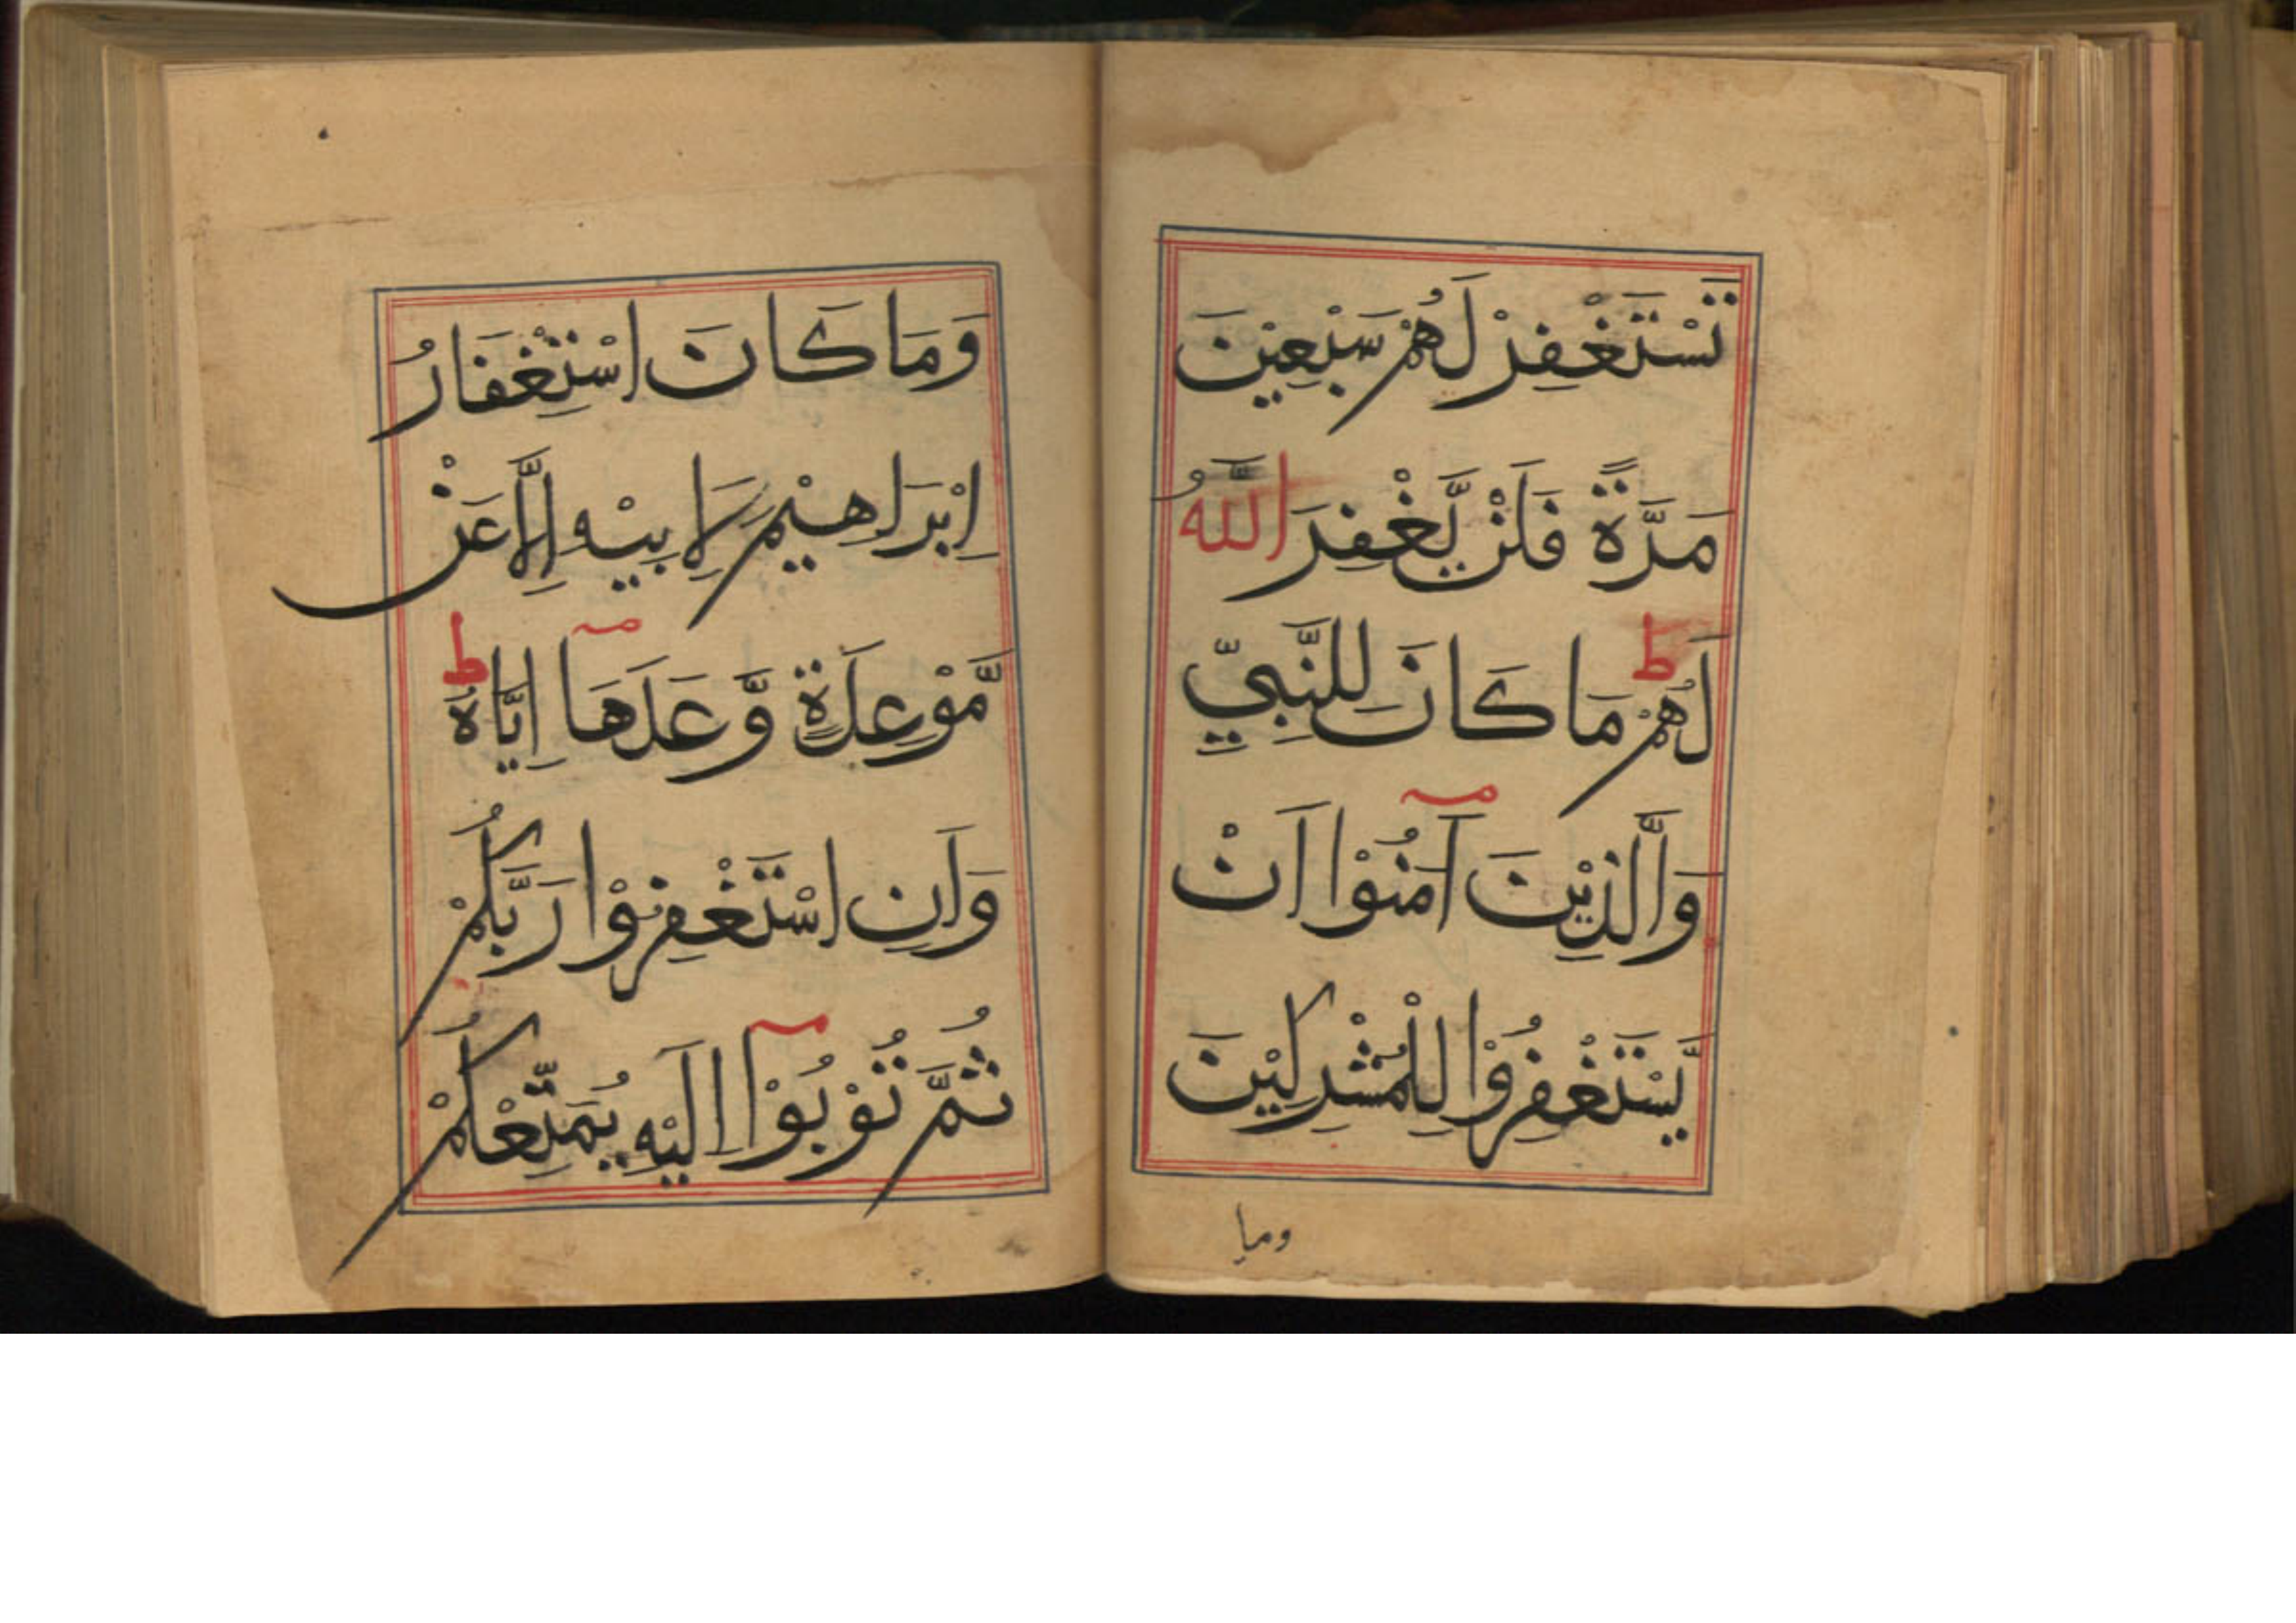 تَسْتَغْفِرْ لَهُمْ سَبْعِيْنَ
مَرَّةً فَلَنْ يَّغْفِرَ اللّٰهُ
لَهُمْ ط مَا كَانَ لِلنَّبِيِّ
وَالَّذِيْنَ اٰمَنُوْا اَنْ
يَّسْتَغْفِرُوْا لِلْمُشْرِكِيْنَ
وما
وَمَا كَانَ اسْتِغْفَارُ
اِبْرَاهِيْمَ لِاَبِيْهِ اِلَّا عَنْ
مَّوْعِدَةٍ وَّعَدَهَا اِيَّاهُ ط
وَاَنِ اسْتَغْفِرُوْا رَبَّكُمْ
ثُمَّ تُوْبُوْا اِلَيْهِ يُمَتِّعْكُمْ